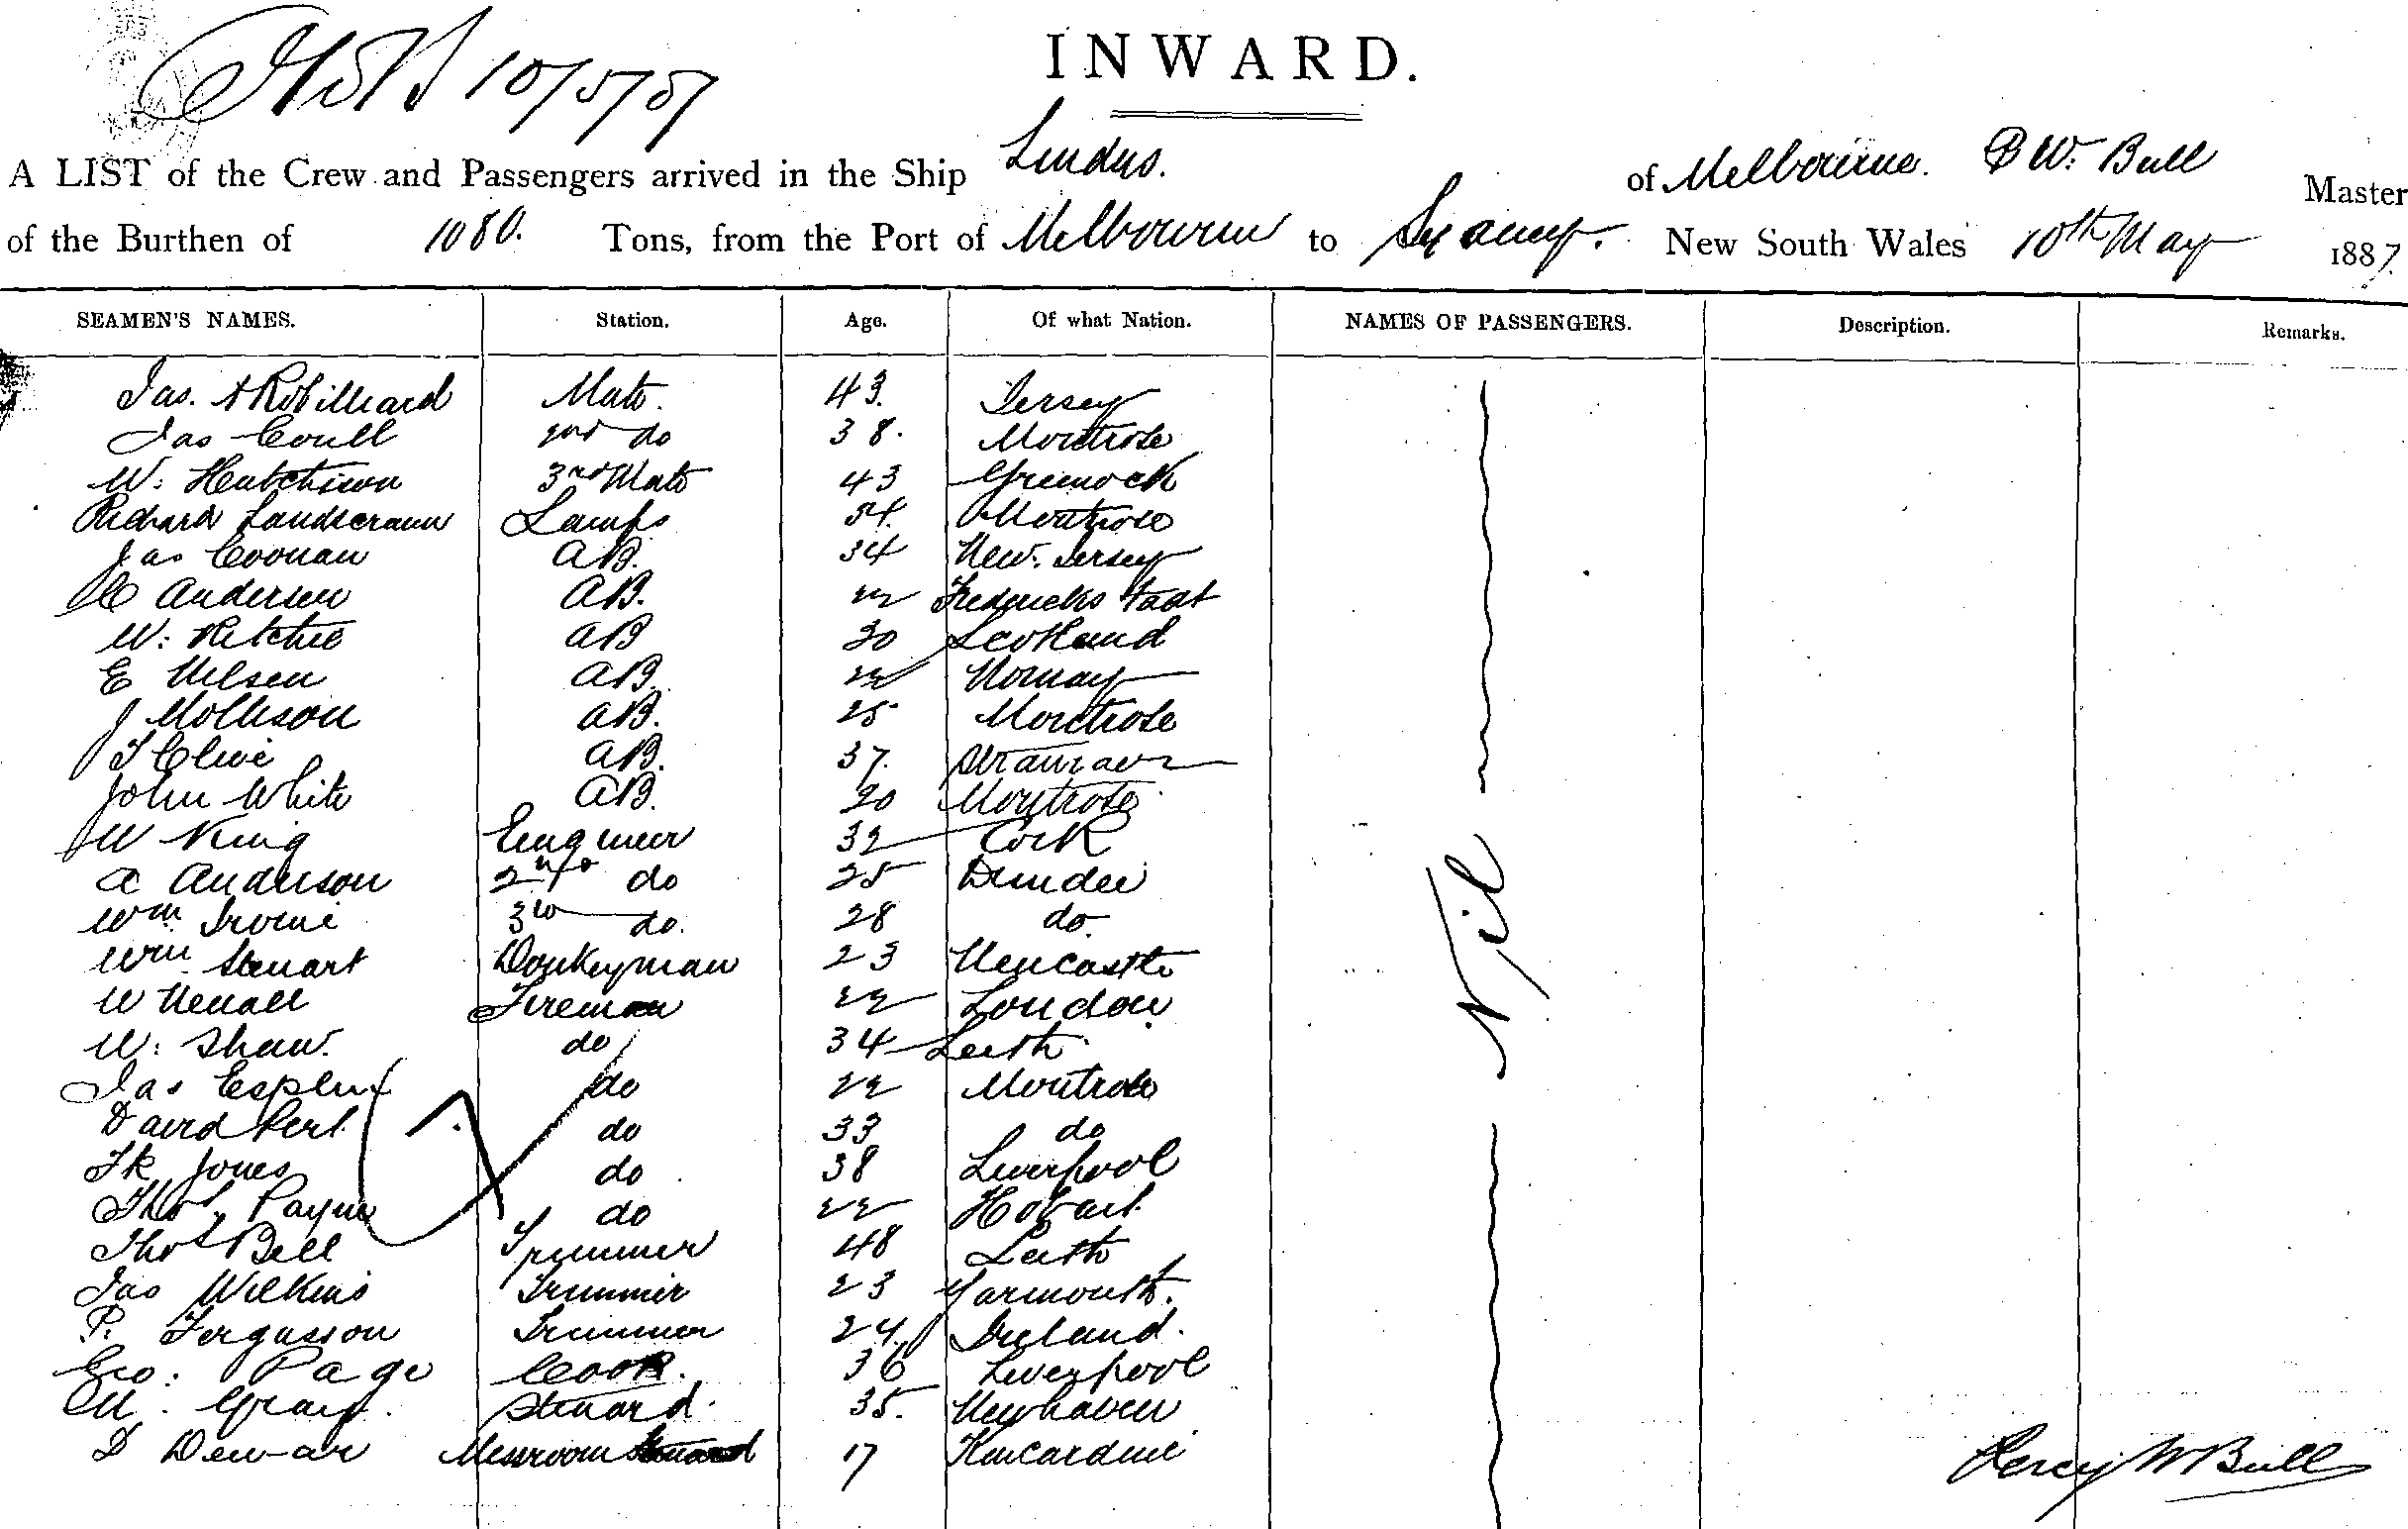 10/5/87
INWARD.
A LIST of the Crew and Passengers arrived in the Ship Lindus. of Melbourne. P W. Bull Master
of the Burthen of 1080. Tons, from the Port of Melbourne to Sydney. New South Wales 10th May 1887.
SEAMEN'S NAMES. Station. Age. Of what Nation. NAMES OF PASSENGERS. Description. Remarks.
Jas. A Robilliard Mate. 43. Jersey
Jas Coull 2nd do 38. Montrose
W: Hutchison 3rd Mate 43 Greenock
Richard Lamps 54. Montrose
Jas Coonan AB. 34 New Jersey
C Andersen AB. 22 Fredericks tadt
W: Ritchie AB 30 Scotland
E Nilsen AB. 22 Norway
J Mollison AB. 25 Montrose
T Clive AB. 37. Stranraer
John White AB. 20 Montrose
W King Engineer 32 Cork
A Anderson 2nd do 25 Dundee
Wm Irvine 3rd do. 28 do
Wm Stewart Donkeyman 23 Newcastle
W Newall Fireman 22 London
W: Shaw. do 34 Leith
Jas Esplin do 22 Montrose
David Pert. do 33 do
Fk Jones do 38 Liverpool
Thos. Payne do 22 Hobart.
Thos Bell Trimmer 48 Leith
Jas Wilkins Trimmer 23 Yarmouth.
P. Fergusson Trimmer 24. Ireland.
Geo: Page Cook. 36 Liverpool
M. Gray. Steward. 35. Newhaven
D Dewar Messroom Steward 17 Kincardine
Nil
Percy W Bull